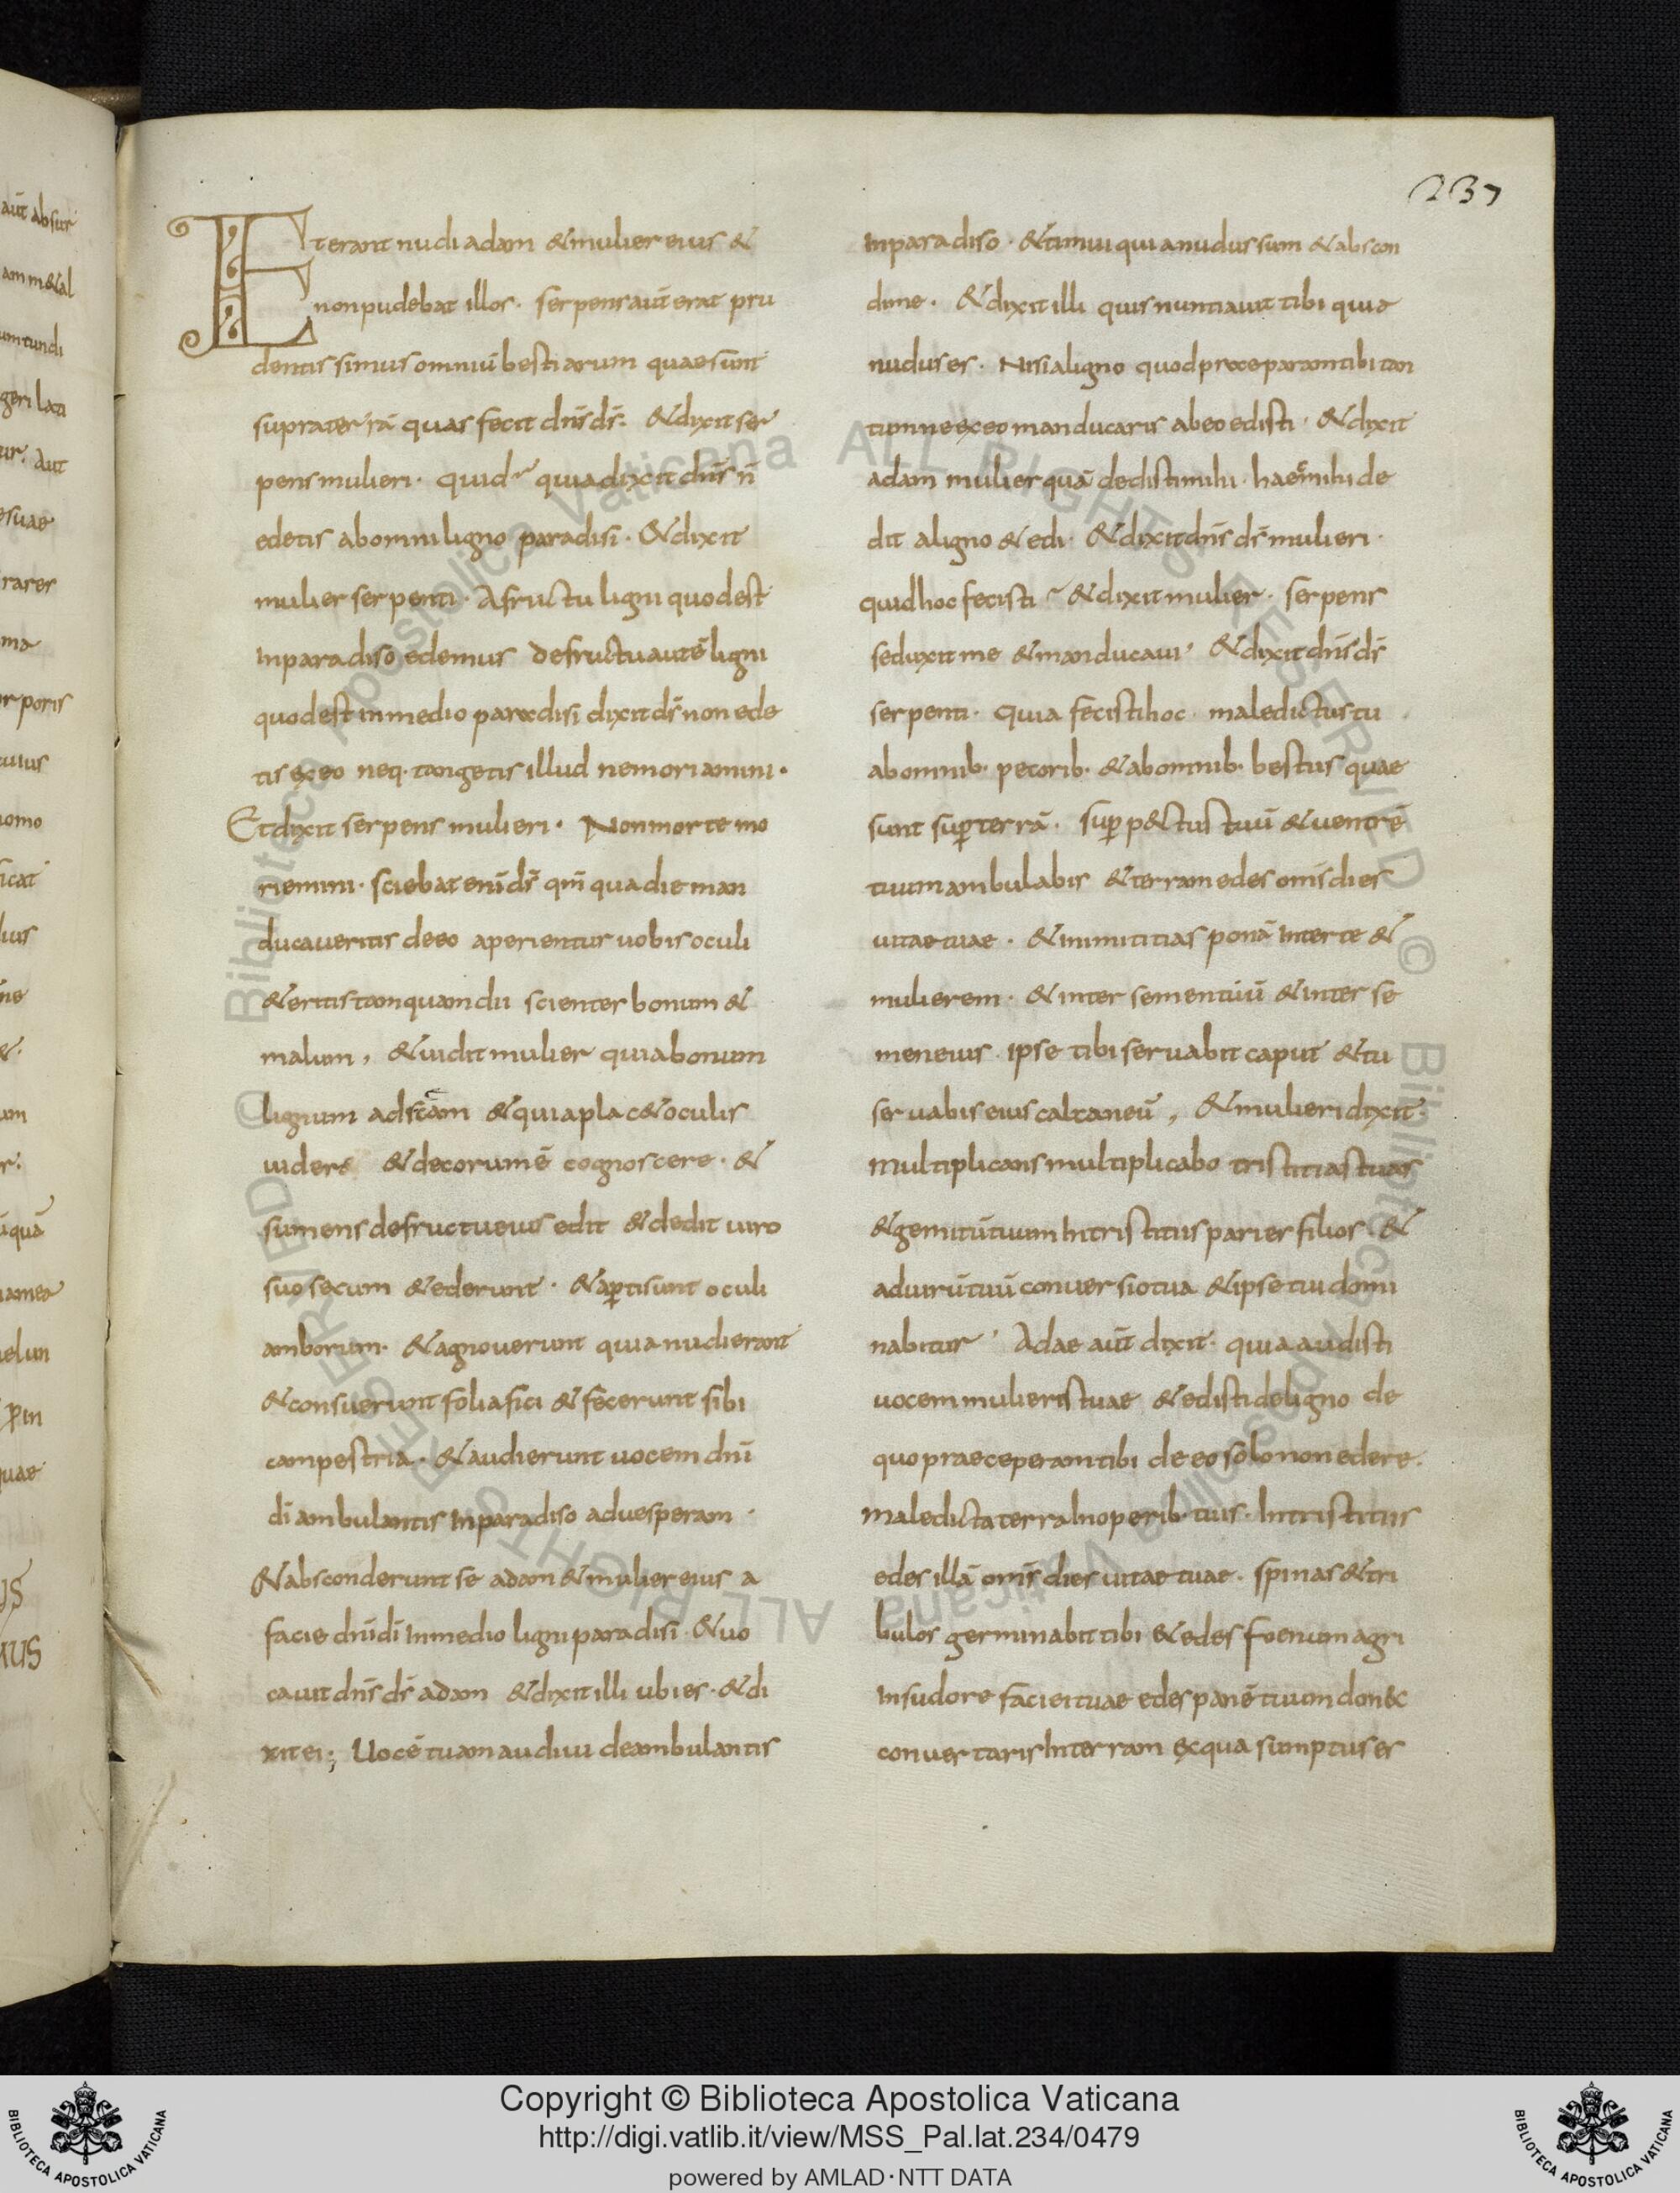 237
Et erant nudi adam & mulier eius &
non pudebat illos. serpens aut̄ erat pru
dentissimus omniū bestiarum quae sunt
supra terrā quas fecit dn̄s ds̄. & dixit ser
pens mulieri. quid quia dixit dn̄s n̄
edetis ab omni ligno paradisi. & dixit
mulier serpenti. A fructu ligni quod est
In paradiso edemus De fructu autē ligni
quod est in medio paradisi dixit ds̄ non ede
tis ex eo neq. tangetis illud ne moriamini.
Et dixit serpens mulieri. Non morte mo
riemini. sciebat enī ds̄ qm̄ qua die man
ducaveritis de eo aperientur uobis oculi
& eritis tamquam dii scientes bonum &
malum, & uidit mulier quia bonum
lignum ad escam & quia plac& oculis
uidere & decorum ē cognoscere. &
sumens de fructu eius edit & dedit uiro
suo secum & ederunt. & apti sunt oculi
amborum. & agnouerunt quia nudi erant
& consuerunt folia fici & fecerunt sibi
campestria. & audierunt uocem dn̄i
dī ambulantis In paradiso ad uesperam.
& absconderunt se adam & mulier eius a
facie dn̄i dī In medio ligni paradisi. & uo
cauit dn̄s ds̄ adam & dixit illi ubi es. & di
xit ei; Uocē tuam audiui deambulantis
In paradiso. & timui quia nudus sum & abscon
di me. & dixit illi quis nuntiauit tibi quia
nudus es. Nisi a ligno quod praeceparam tibi tan
tum ne ex eo manducaris ab eo edisti. & dixit
adam mulier quā dedisti mihi. haec mihi de
dit a ligno & edi. & dixit dn̄s ds̄ mulieri.
quid hoc fecisti & dixit mulier. serpens
seduxit me & manducaui. & dixit dn̄s ds̄
serpenti. Quia fecisti hoc. maledictus tu
ab omnib. pecorib. & ab omnib. bestiis quae
sunt sup terrā. sup p&tus tuū & uentrē
tuum ambulabis & terram edes omīs dies
uitae tuae. & inimicitias ponā Inter te &
mulierem. & inter semen tuū & inter se
men eius. ipse tibi seruabit caput & tu
seruabis eius calcaneū, & mulieri dixit.
Multiplicans multiplicabo tristitias tuas
& gemitū tuum In tristitiis paries filios &
ad uirū tuū conuersio tua & ipse tui domi
nabitur. Adae aut̄ dixit. quia audisti
uocem mulieris tuae & edisti de ligno de
quo praeceperam tibi de eo solo non edere.
Maledicta terra In operib. tuis. In tristitiis
edes illā omīs dies uitae tuae. spinas & tri
bulos germinabit tibi & edes foenum agri
In sudore faciei tuae edes panē tuum donec
conuertaris In terram ex qua sumptus es
Copyright © Biblioteca Apostolica Vaticana
http://digi.vatlib.it/view/MSS_Pal.lat.234/0479
powered by AMLAD·NTT DATA